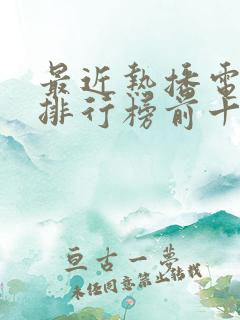 最近熱播電
排行榜前十
亘古一梦
未经同意禁止转载